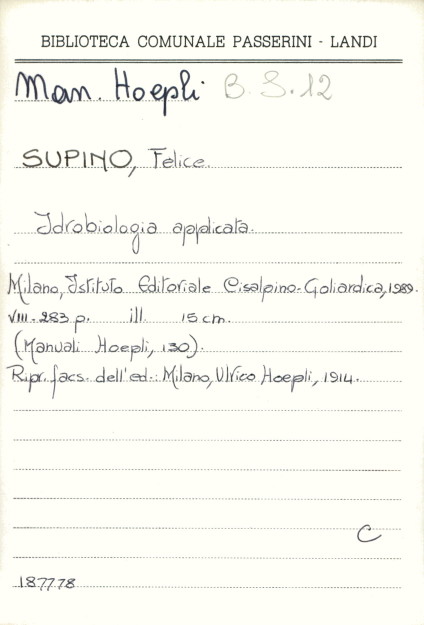 BIBLIOTECA COMUNALE PASSERINI - LANDI
Man. Hoepli B. S. 12
SUPINO, Felice.
Idrobiologia applicata.
Milano, Istituto Editoriale Cisalpino-Goliardica, 1989.
VIII-283 p. ill. 15 cm.
(Manuali Hoepli, 130).
Ripr. facs. dell'ed.: Milano, Ulrico Hoepli, 1914.
C
187778